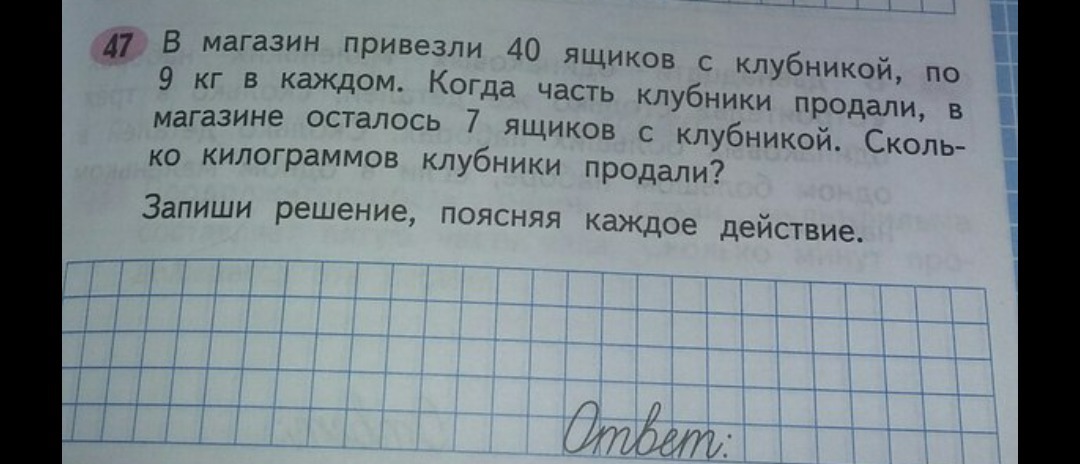 47 В магазин привезли 40 ящиков с клубникой, по
9 кг в каждом. Когда часть клубники продали, в
магазине осталось 7 ящиков с клубникой. Сколь-
ко килограммов клубники продали?
Запиши решение, поясняя каждое действие.
Ответ: